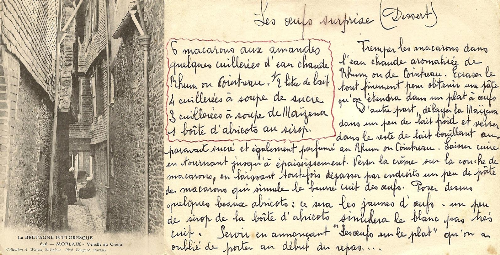 Les œufs surprise (Dessert)
6 macarons aux amandes
quelques cuillerées d'eau chaude
Rhum ou Cointreau. 1/2 litre de lait
4 cuillerées à soupe de sucre
3 cuillerées à soupe de Maïzena
1 boîte d'abricots au sirop.
Tremper les macarons dans
l'eau chaude aromatisée de
Rhum ou de Cointreau. Ecraser le
tout finement pour obtenir une pâte
qu'on étendra dans un plat à œufs
D'autre part, délayer la Maïzena
dans un peu de lait froid et verser
dans le reste de lait bouillant au
paravant sucré et également parfumé au Rhum ou Cointreau. Laisser cuire
en tournant jusqu'à épaississement. Verser la crème sur la couche de
macarons, en laissant toutefois dépasser par endroits un peu de pâte
de macarons qui simule le beurre cuit des œufs. Poser dessus
quelques beaux abricots : ce sera les jaunes d'œufs. un peu
de sirop de la boîte d'abricots simulera le blanc pas très
cuit. Servir en annonçant "Les œufs sur le plat" qu'on a
oublié de porter au début du repas...
La BRETAGNE PITTORESQUE
MORLAIX